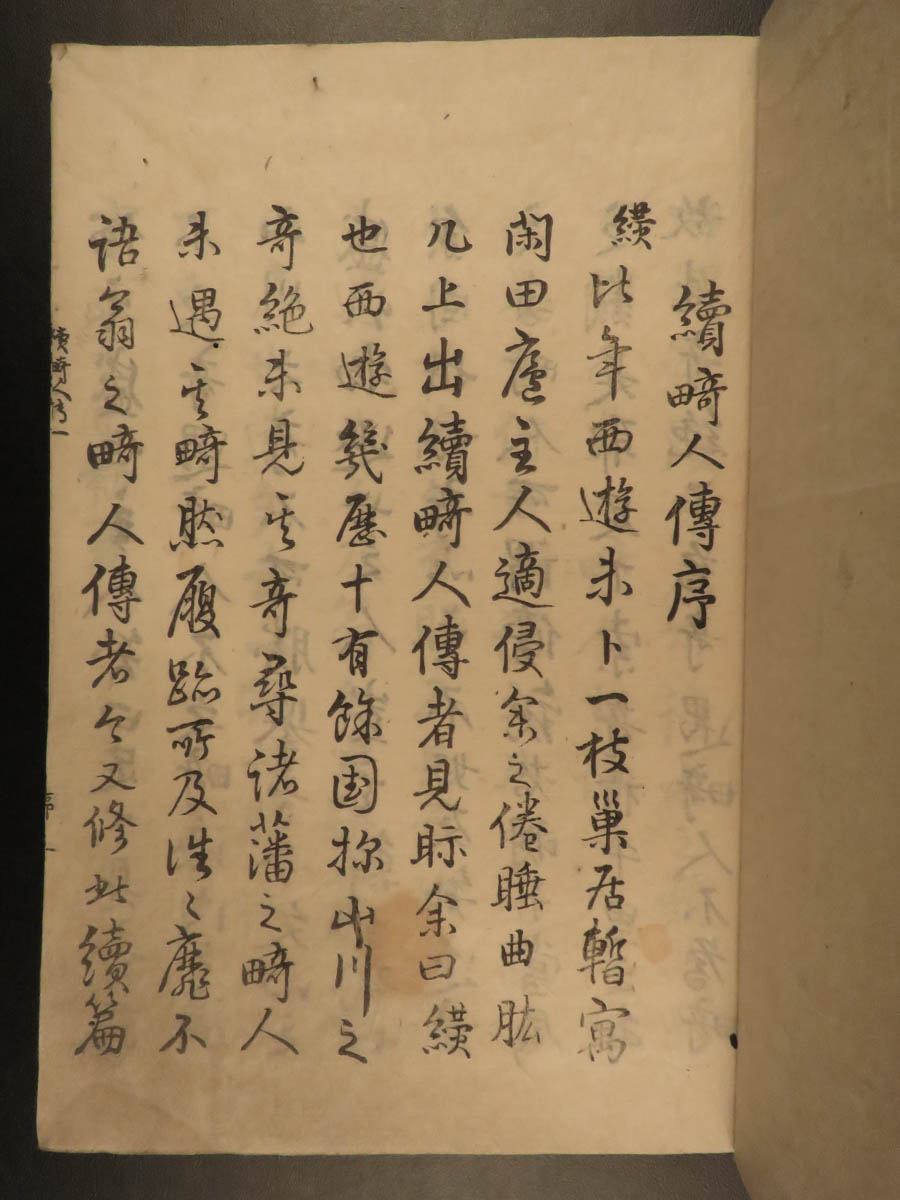 續畸人傳序
纉比年西遊未卜一枝巢居暫寓
閑田廬主人適侵余之倦睡曲肱
几上出續畸人傳者見眎余曰纉
也西遊幾歷十有餘国探山川之
奇絶未見其奇尋諸藩之畸人
未遇其畸然履跡所及浩〻靡不
語翁之畸人傳者今又修此續篇
續畸人傳一
序 一